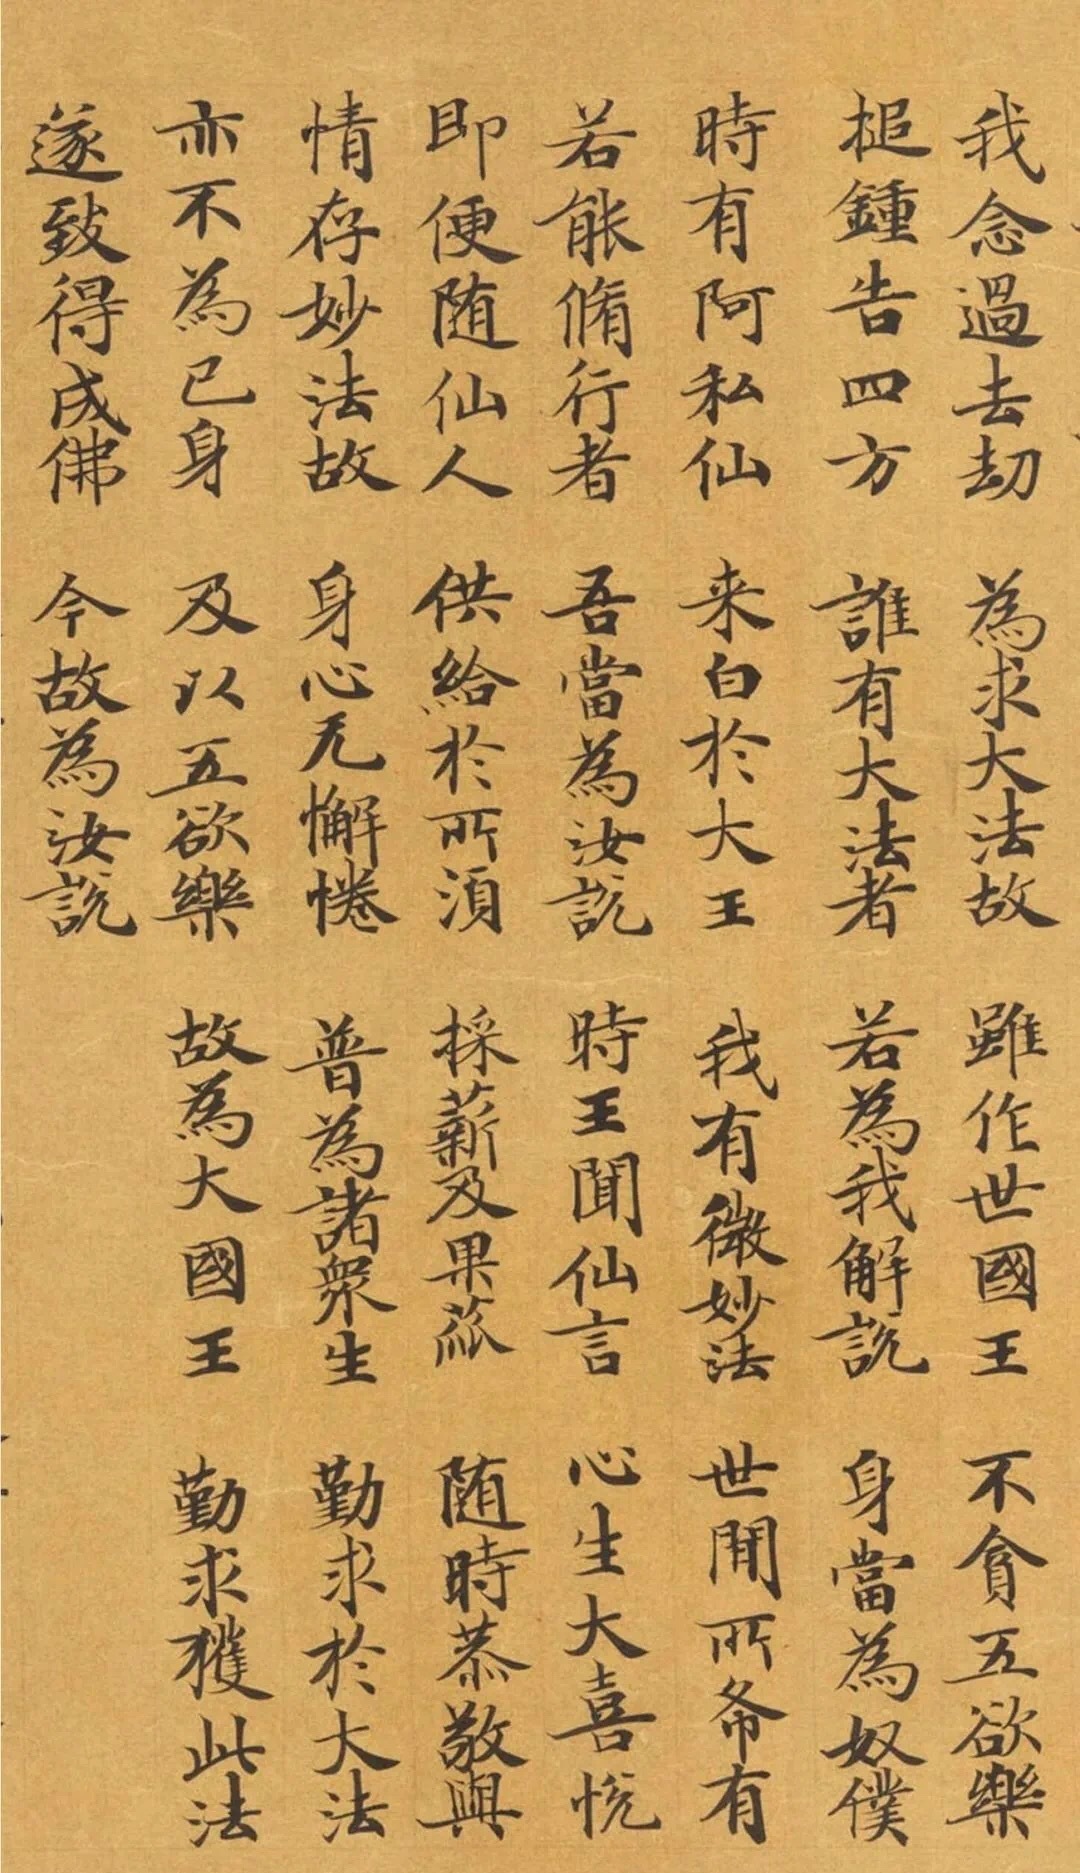 我念過去劫 為求大法故 雖作世國王 不貪五欲樂
槌鍾告四方 誰有大法者 若為我解說 身當為奴僕
時有阿私仙 来白於大王 我有微妙法 世間所希有
若能脩行者 吾當為汝說 時王聞仙言 心生大喜悅
即便随仙人 供給於所須 採薪及果蓏 随時恭敬與
情存妙法故 身心无懈惓 普為諸衆生 勤求於大法
亦不為己身 及以五欲樂 故為大國王 勤求獲此法
遂致得成佛 今故為汝說